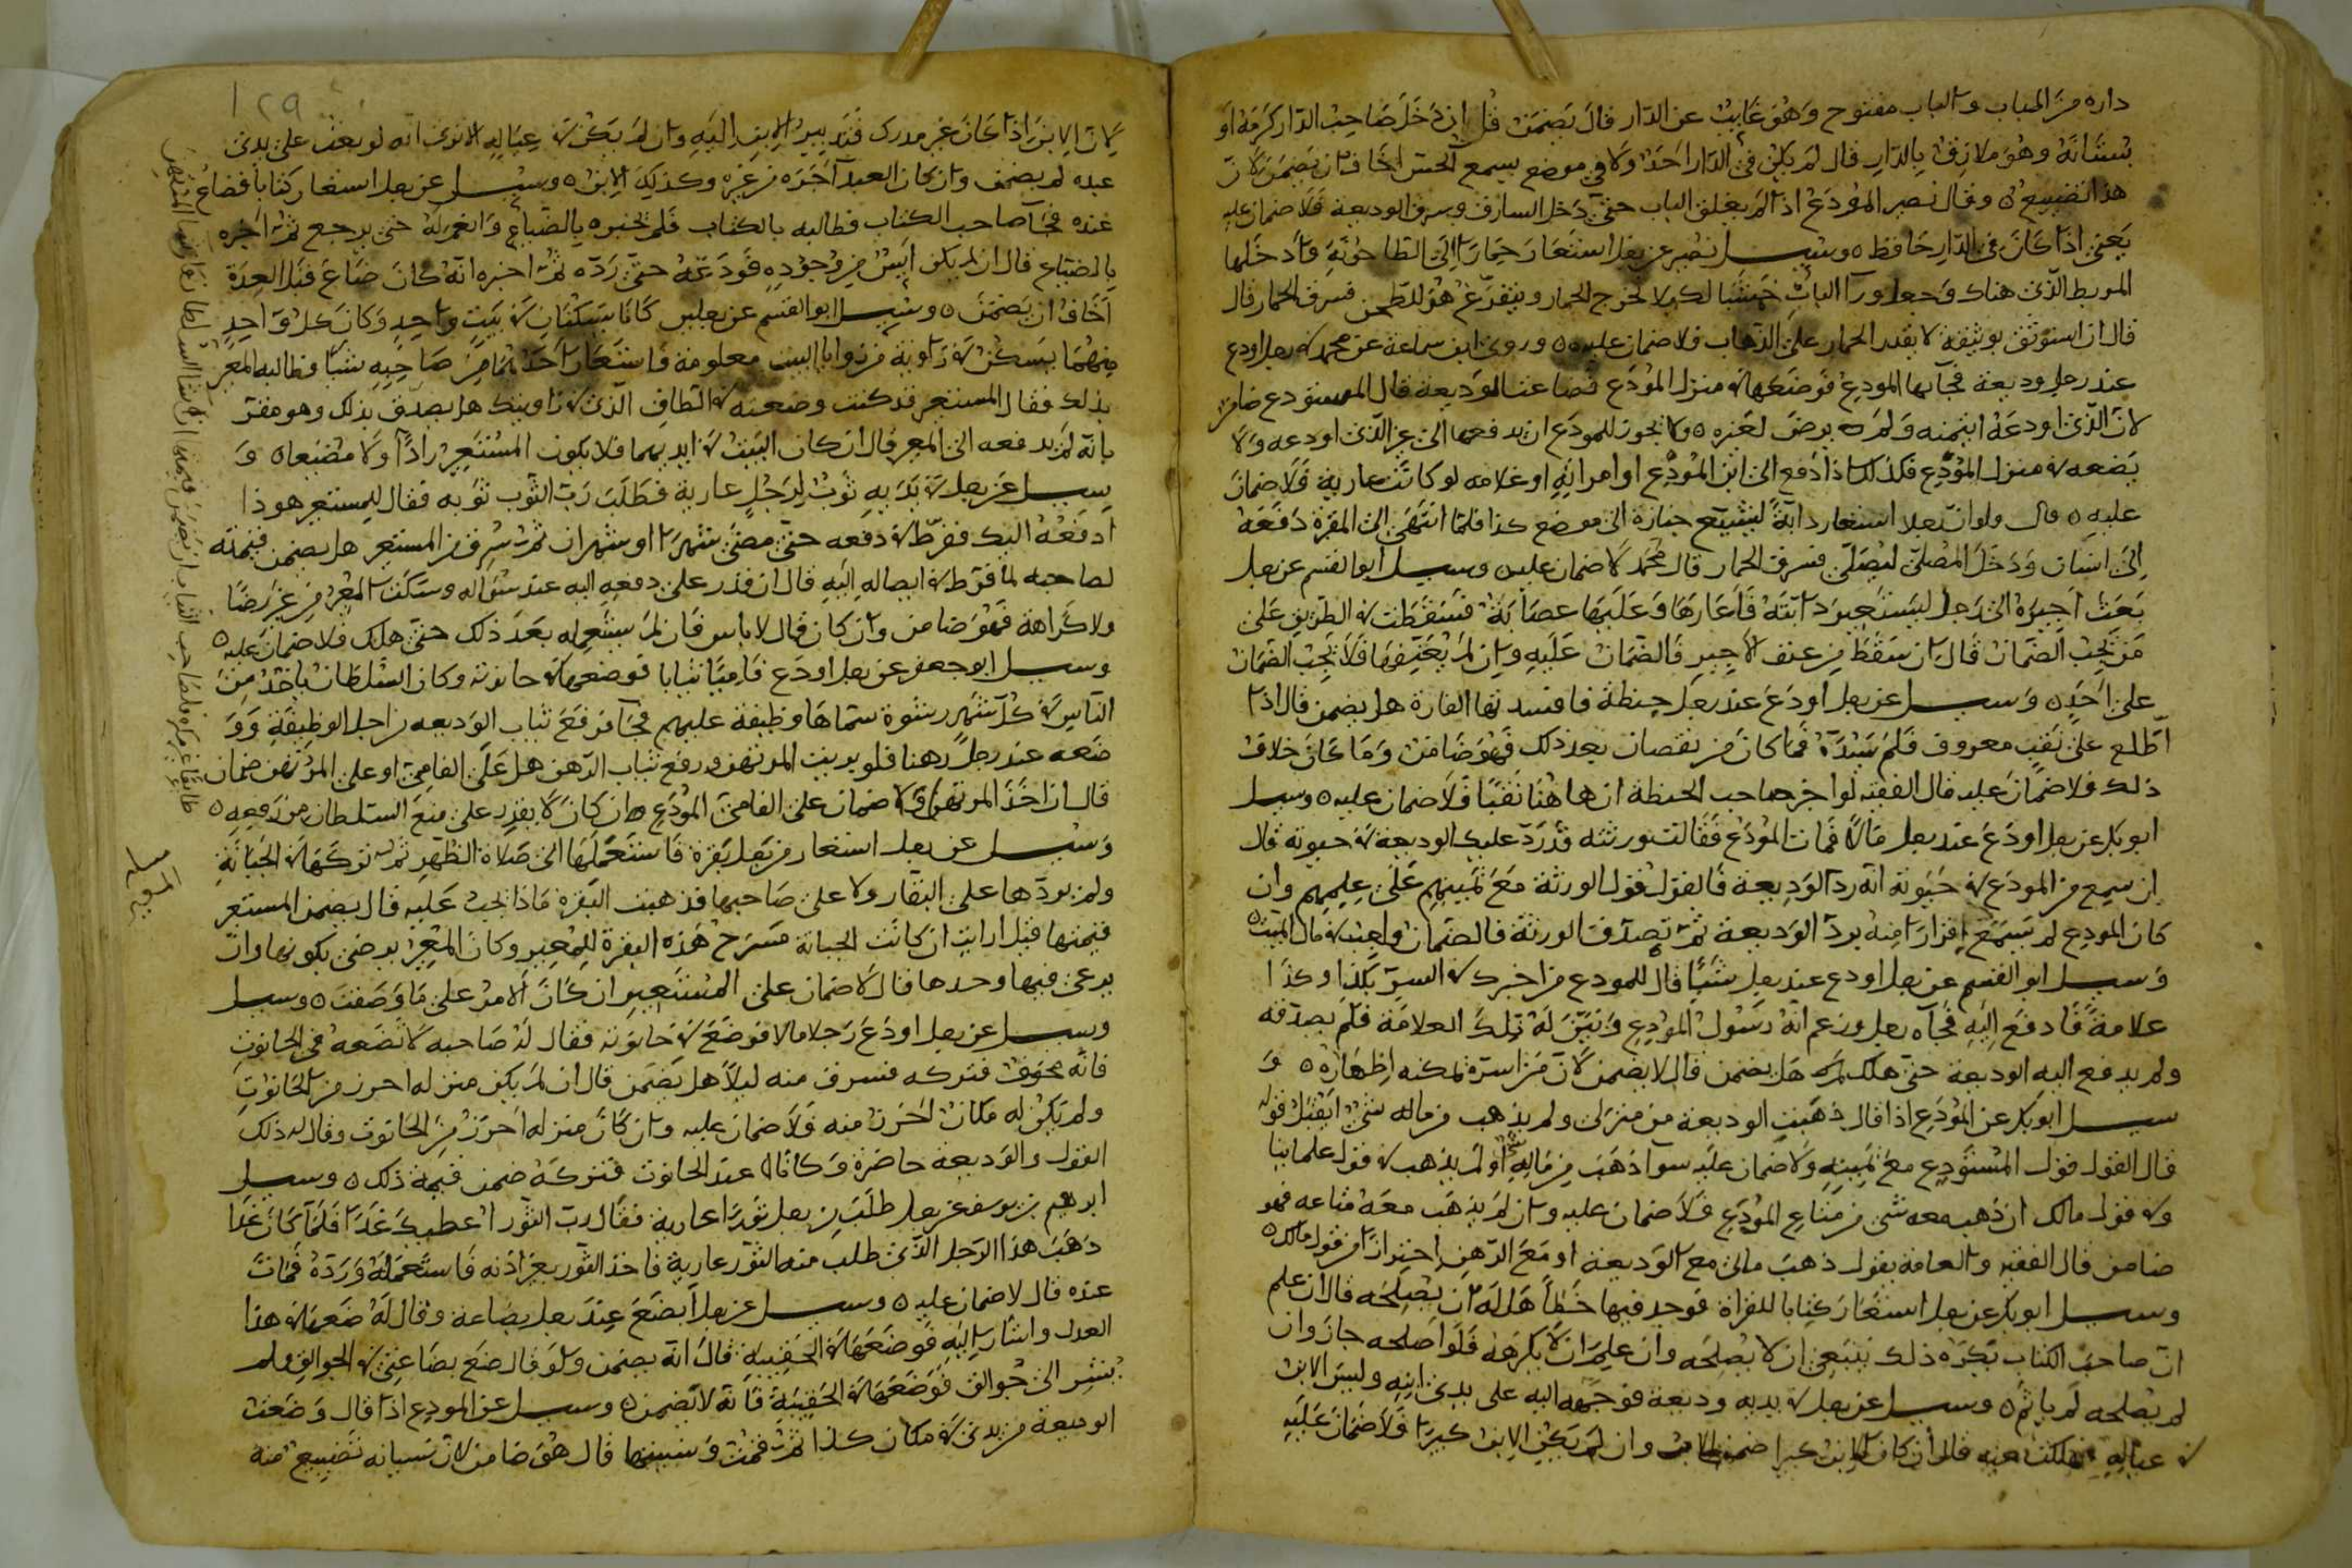 داره من الباب والباب مفتوح وهو غايب عن الدار قال يضمن قيل ان دخل صاحب الدار كرمه او
بستانه وهو ملازق بالدار قال لم يكن في الدار احد ولا في موضع يسمع الحس اخاف ان يضمن لان
هذا تضييع ٥ وقال نصير المودع اذا لم يغلق الباب حتى دخل السارق وسرق الوديعة فلا ضمان عليه
يعني اذا كان في الدار حافظ ٥ وسيل نصير عن رجل استعار حمارا الى الطاحونة فادخلها
المربط الذي هناك وجعل ورآ الباب خشبا لكيلا يخرج الحمار ويتفرغ هو للطحن فسرق الحمار قال
قال ان استوثق بوثيقة لا يقدر الحمار على الذهاب فلا ضمان عليه ٥ وروى ابن سماعة عن محمد في رجل اودع
عند رجل وديعة فجآ بها المودع فوضعها في منزل المودع فضاعت الوديعة قال المستودع ضامن
لان الذي اودعه ايتمنه ولم يرض لغيره ٥ ولا يجوز للمودع ان يدفعها الى غير الذي اودعه ولا
يضعه في منزل المودع فكذلك اذا دفع الى ابن المودع او امراته او غلامه لو كانت عارية فلا ضمان
عليه ٥ قال ولو ان رجلا استعار دابة لتشييع جنازة الى موضع كذا فلما انتهى الى المقبرة دفعه
الى انسان ودخل المصلى ليصلي فسرق الحمار قال محمد لا ضمان عليه ٥ وسيل ابو القسم عن رجل
بعث اجيره الى رجل ليستعير دابته فاعارها وعليها عصابة فسقطت في الطريق على
من يجب الضمان قال ان سقط من عنف الاجير فالضمان عليه وان لم يعنفها فلا يجب الضمان
على احد ٥ وسيل عن رجل اودع عند رجل حنطة فافسدتها الفارة هل يضمن قال اذا
اطلع على نقب معروف فلم يسده فما كان من نقصان بعد ذلك فهو ضامن وما كان خلاف
ذلك فلا ضمان عليه قال الفقيه لو اخبر صاحب الحنطة ان هاهنا نقبا فلا ضمان عليه ٥ وسيل
ابو بكر عن رجل اودع عند رجل مالا فمات المودع فقالت ورثته قد رد عليك الوديعة في حيوته قال
ان سمع من المودع في حيوته انه رد الوديعة فالقول قول الورثة مع يمينهم على علمهم وان
كان المودع لم يسمع اقرارا منه برد الوديعة ثم تصدق الورثة فالضمان واجب في مال الميت ٥
وسيل ابو القسم عن رجل اودع عند رجل شيا قال للمودع من اخبرك في السر بكذا وكذا
علامة فادفع اليه فجآه رجل وزعم انه رسول المودع وبين له تلك العلامة فلم يصدقه
ولم يدفع اليه الوديعة حتى هلك هل يضمن قال لا يضمن لان من اسره يمكنه اظهاره ٥ و
سيل ابو بكر عن المودع اذا قال ذهبت الوديعة من منزلي ولم يذهب من ماله شي ايقبل قوله
قال القول قول المستودع مع يمينه ولا ضمان عليه سوا ذهب من ماله شي او لم يذهب في قول علماينا
وفي قول مالك ان ذهب معه شي من متاع المودع فلا ضمان عليه وان لم يذهب معه متاعه فهو
ضامن قال الفقيه والعامة يقول ذهب مالي مع الوديعة او مع الرهن احترازا من قول مالك ٥
وسيل ابو بكر عن رجل استعار كتابا للقراة فوجد فيها خطأ هل له ان يصلحه قال ان علم
ان صاحب الكتاب يكره ذلك ينبغي ان لا يصلحه وان علم ان لا يكرهه فلو اصلحه جاز وان
لم يصلحه لم ياثم ٥ وسيل عن رجل في يديه وديعة فوجهه اليه على يدي ابنه وليس الابن
في عياله فهلكت فيه قال ان كان الابن كبيرا ضمن وان لم يكن الابن كبيرا فلا ضمان عليه
١٢٩
لان الابن اذا كان غير مدرك فتدبير الابن اليه وان لم يكن في عياله الا ترى انه لو بعث على يدي
عبده لم يضمن وان كان العبد آجره من غيره وكذلك الابن ٥ وسيل عن رجل استعار كتابا فضاع
عنده فجآ صاحب الكتاب فطالبه بالكتاب فلم يخبره بالضياع وانعم له حتى يرجع ثم اخبره
بالضياع قال ان لم يكن ايس من وجوده فوعده حتى رده ثم اخبره انه كان ضاع قبل العدة
اخاف ان يضمن ٥ وسيل ابو القسم عن رجلين كانا يسكنان في بيت واحد وكان كل واحد
منهما يسكن في زاوية من زوايا البيت معلومة فاستعار احدهما من صاحبه شيا فطالبه المعير
بذلك فقال المستعير قد كنت وضعته في الطاق الذي في زاويتك هل يصدق بذلك وهو مقر
بانه لم يدفعه الى المعير قال ان كان البيت في ايديهما فلا يكون المستعير رادا ولا مضيعا ٥ و
سيل عن رجل في يديه ثوب لرجل عارية فطلب رب الثوب ثوبه فقال للمستعير هو ذا
ادفعه اليك ففرط في دفعه حتى مضى شهرا او شهران ثم سرق من المستعير هل يضمن قيمته
لصاحبه لما فرط في ايصاله اليه قال ان قدر على دفعه اليه عند سؤاله وسكت المعير من غير رضا
ولا كراهة فهو ضامن وان كان قال لا باس فان لم يستعمله بعد ذلك حتى هلك فلا ضمان عليه ٥
وسيل ابو جعفر عن رجل اودع فاميا ثيابا فوضعها في حانوته وكان السلطان ياخذ من
الناس في كل شهر رشوة سماها وظيفة عليهم فجآ فرفع ثياب الوديعة من اجل الوظيفة وو
ضعه عند رجل رهنا فلو بربيت المرتهن ورفع ثياب الرهن هل على الفامي او على المرتهن ضمان
قال ان اخذ المرتهن ولا ضمان على الفامي المودع ان كان لا يقدر على منع السلطان من رفعه ٥
وسيل عن رجل استعار من رجل بقرة فاستعملها الى صلاة الظهر ثم تركها في الجبانة
ولم يردها على البقار ولا على صاحبها فذهبت البقرة ماذا يجب عليه قال يضمن المستعير
قيمتها قيل ارايت ان كانت الجبانة مسرح هذه البقرة للمعير وكان المعير يرضى بكونها وان
يرعى فيها وحدها قال لا ضمان على المستعير ان كان الامر على ما وصفت ٥ وسيل
وسيل عن رجل اودع رجلا مالا فوضع في حانوته فقال له صاحبه لا تضعه في الحانوت
فانه مخوف فتركه فسرق منه ليلا هل يضمن قال ان لم يكن منزله احرز من الحانوت
ولم يكن له مكان احرز منه فلا ضمان عليه وان كان منزله احرز من الحانوت وقال له ذلك
القول والوديعة حاضرة وكانا عند الحانوت فتركه ضمن قيمة ذلك ٥ وسيل
ابرهيم بن يوسف عن رجل طلب من رجل ثورا عارية فقال رب الثور اعطيك غدا فلما كان غدا
ذهب هذا الرجل الذي طلب منه الثور عارية فاخذ الثور بغير اذنه فاستعمله ورده فمات
عنده قال لا ضمان عليه ٥ وسيل عن رجل ابضع عند رجل بضاعة وقال له ضعها في هذا
العدل واشار اليه فوضعها في الحقيبة قال انه يضمن ولو قال ضع بضاعتي في الجوالق ولم
يشر الى جوالق فوضعها في الحقيبة فانه لا يضمن ٥ وسيل عن المودع اذا قال وضعت
الوديعة من يدي في مكان كذا ثم قمت ونسيتها قال هو ضامن لان نسيانه تضييع منه